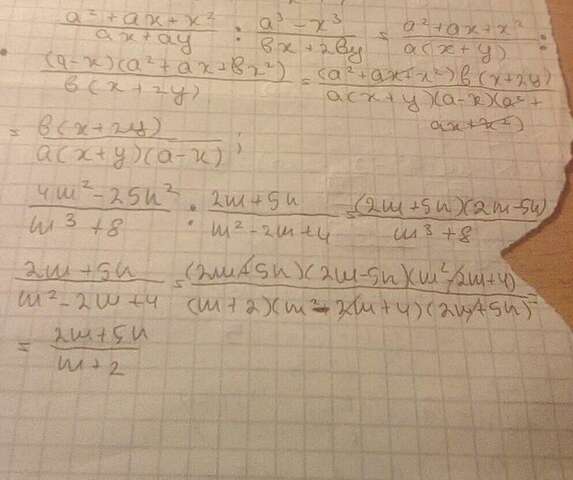 (a² + ax + x²)/(ax + ay) : (a³ - x³)/(bx + 2by) = (a² + ax + x²)/(a(x + y)) :
: ((a-x)(a² + ax + x²))/(b(x + 2y)) = ((a² + ax + x²)b(x+2y))/(a(x+y)(a-x)(a² + ax + x²))
= (b(x + 2y))/(a(x+y)(a-x)) ;
(4m² - 25n²)/(m³ + 8) : (2m + 5n)/(m² - 2m + 4) = ((2m + 5n)(2m - 5n))/(m³ + 8)
(2m + 5n)/(m² - 2m + 4) = ((2m + 5n)(2m - 5n)(m² - 2m + 4))/((m + 2)(m² - 2m + 4)(2m + 5n)) =
= (2m + 5n)/(m + 2)